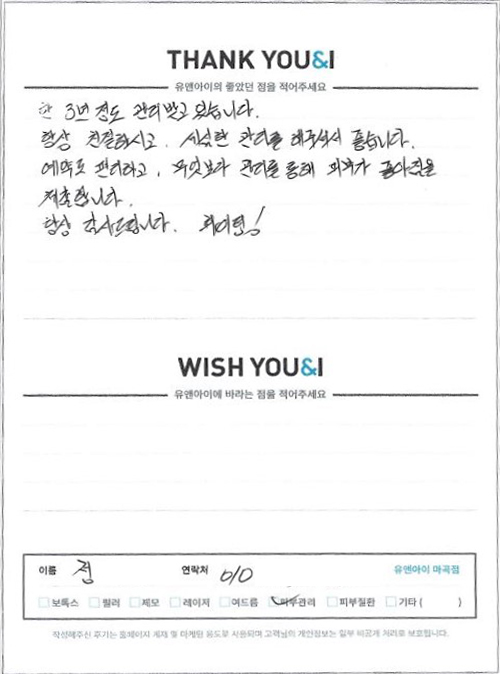 THANK YOU&I
유앤아이의 좋았던 점을 적어주세요
한 3년 정도 관리받고 있습니다.
항상 친절하시고, 시원한 관리를 해주셔서 좋습니다.
예약도 편리하고, 무엇보다 관리를 통해 피부가 좋아졌음을
체감합니다.
항상 감사드립니다. 화이팅!
WISH YOU&I
유앤아이에 바라는 점을 적어주세요
이름 정 연락처 010 유앤아이 마곡점
보톡스 필러 제모 레이저 여드름 피부관리 피부질환 기타 ( )
작성해주신 후기는 홈페이지 게재 및 마케팅 용도로 사용되며 고객님의 개인정보는 일부 비공개 처리로 보호됩니다.